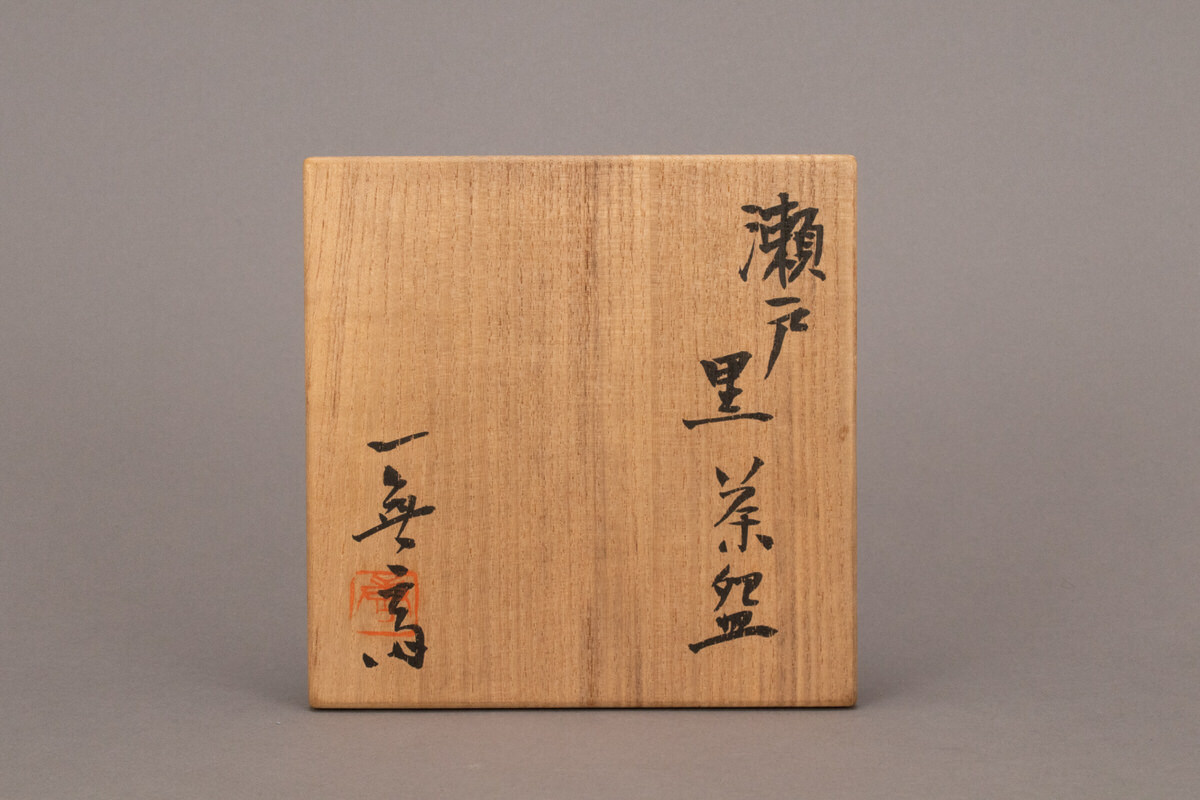 瀬戸黒茶盌
一無斎